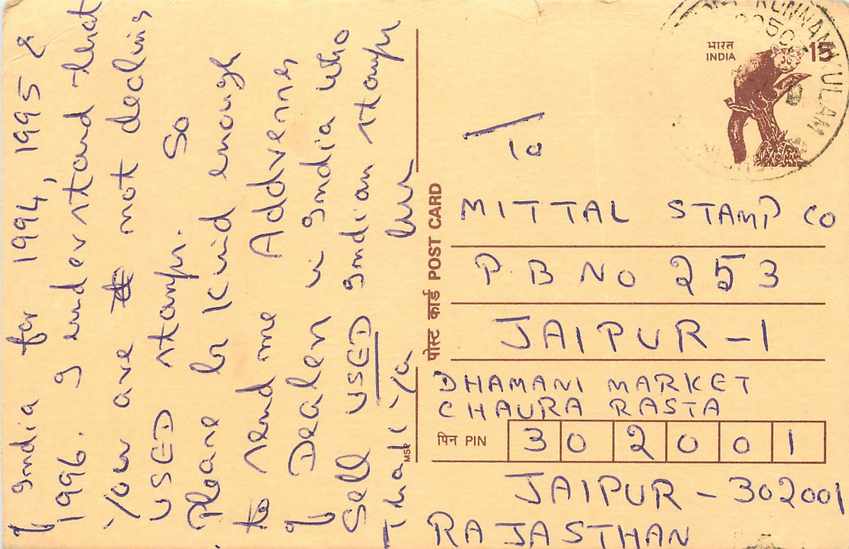 of India for 1994, 1995 &
1996. I understand that
You are not dealing
USED stamps. So
Please be kind enough
to send me Addresses
of Dealers in India who
Sell USED Indian stamps
Thank You
पोस्ट कार्ड POST CARD
MSP
भारत
INDIA
15
KUNNAMKULAM
To
MITTAL STAMP CO
P B NO 253
JAIPUR-1
DHAMANI MARKET
CHAURA RASTA
पिन PIN 302001
JAIPUR - 302001
RAJASTHAN